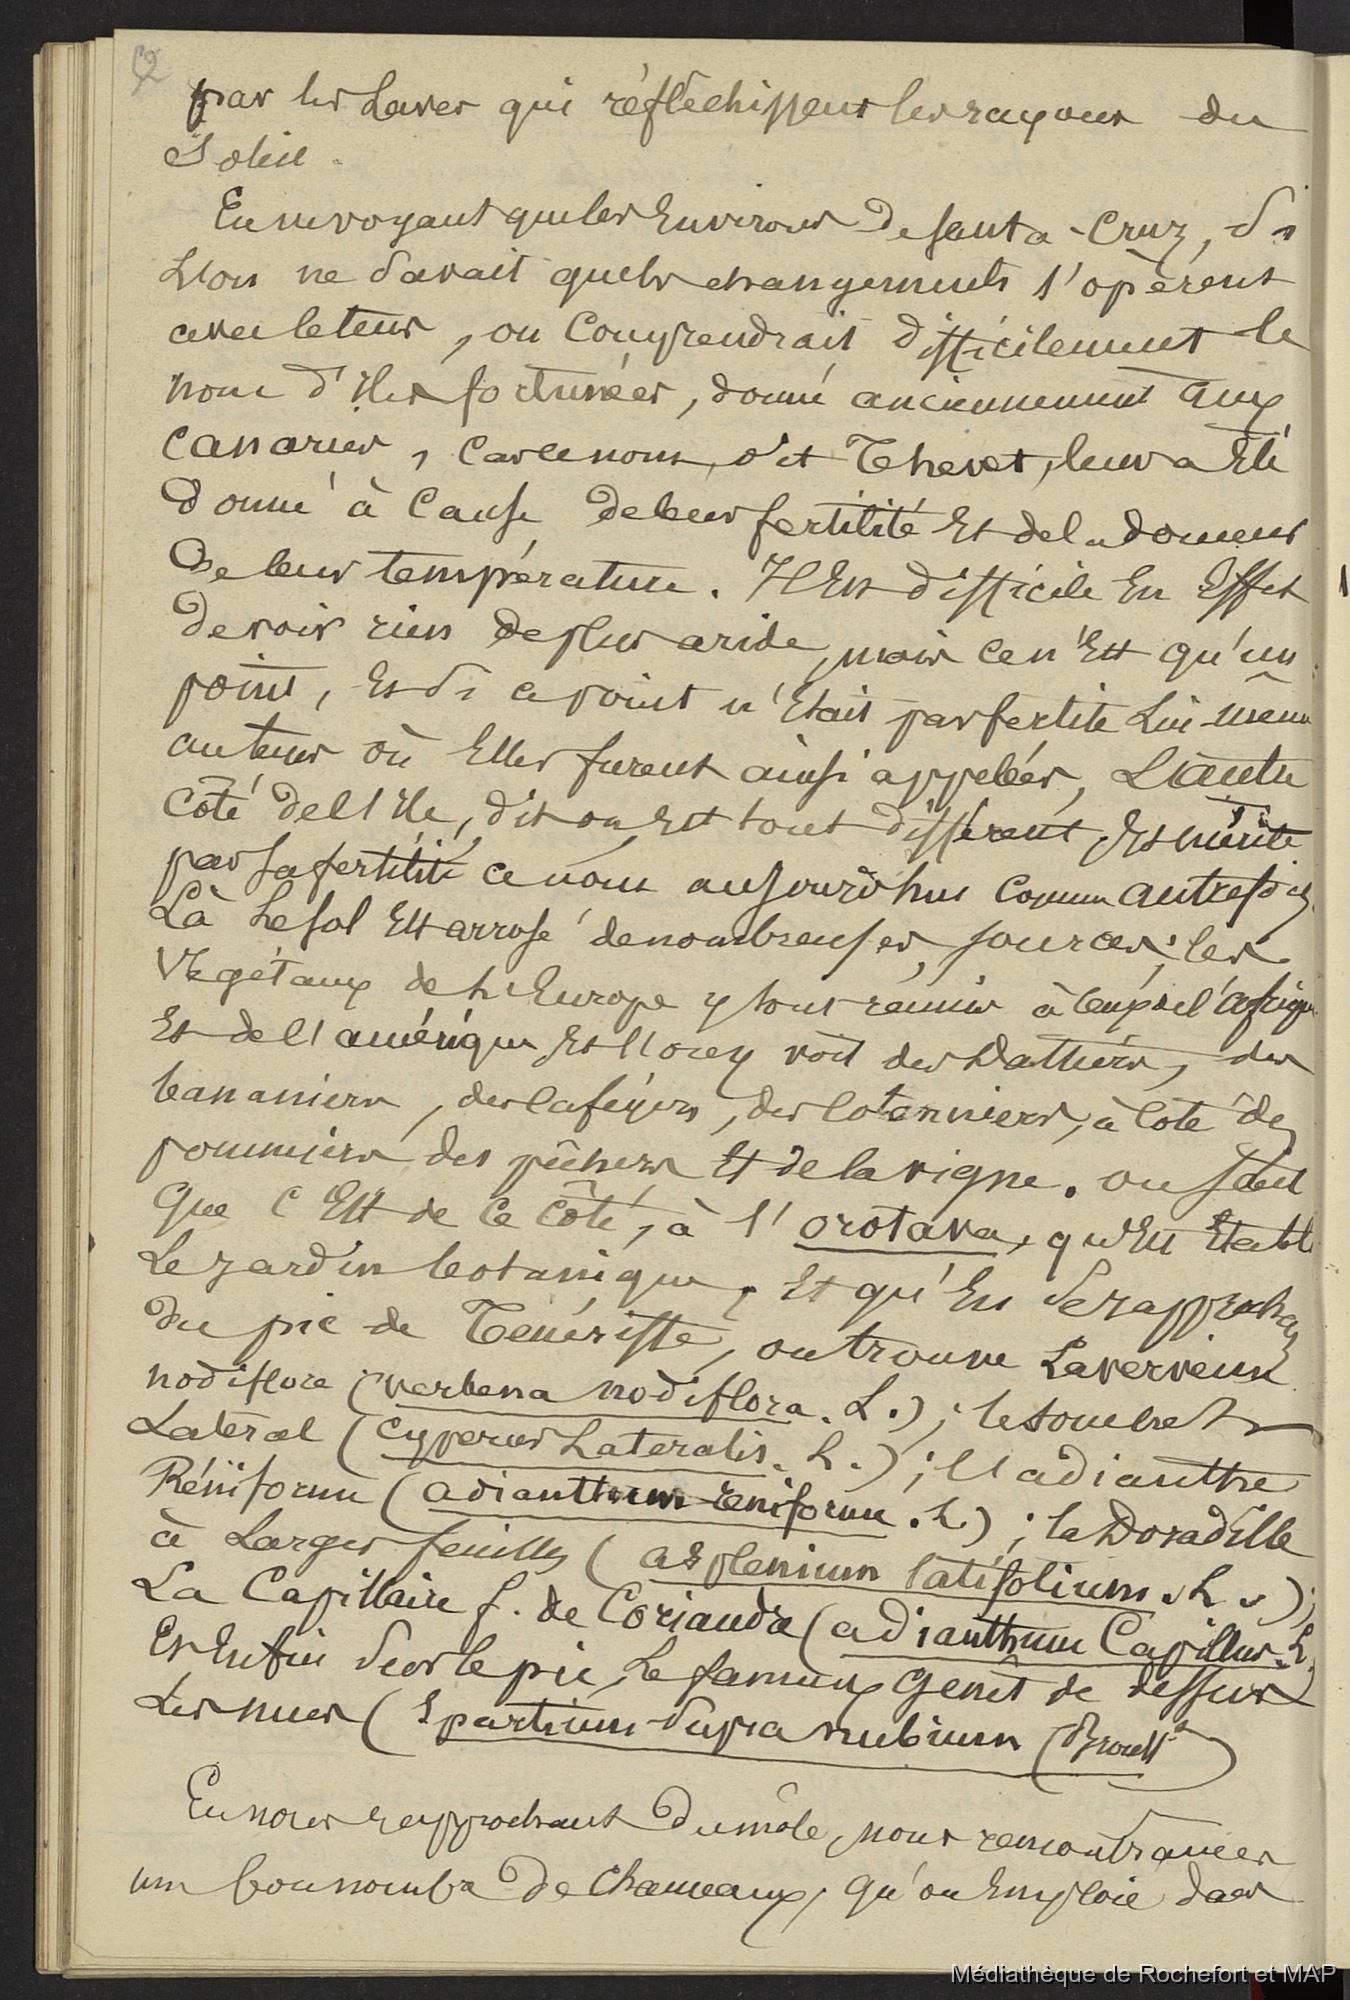 par les Laves qui réfléchissent les rayons du
Soleil.
En ne voyant que les Environs de Santa-Cruz, Si
L'on ne Savait quels changements s'opèrent
avec le tems, on Comprendrait difficilement le
nom d'iles fortunées, donné anciennement aux
Canaries, Car ce nom, dit Thevet, leur a Eté
donné à Cause de leur fertilité Et de la douceur
De leur température. Il Est difficile En Effet
de voir rien de plus aride, mais ce n'Est qu'un
point, Et Si ce point n'Etait pas fertile Lui-même
au tems où Elles furent ainsi appelées, L'autre
Côté de l'Ile, dit-on, Est tout différent, Et mérite
par sa fertilité ce nom aujourd'hui Comme autrefois.
Là Le sol Est arrosé de nombreuses sources; les
Végétaux de L'Europe y sont réunis à ceux de l'afrique
Et de l'amérique Et l'on y voit des Dattiers, des
bananiers, des Cafeyers, des Cotonniers, à Côté des
pommiers des pêchers Et de la vigne. on Sait
Que C'Est de Ce Côté, à l'orotava, qu'Est Etabli
Le Jardin botanique, Et qu'En Se rapprochant
Du pic de Ténériffe, on trouve La verveine
nodiflore (verbena nodiflora. L.); le Souchet
Latéral (Cyperus Lateralis. L.); l'adianthe
Réniforme (adianthum reniforme. L.); la Doradille
à Larges feuilles (asplenium latifolium. L.);
La Capillaire f. de Coriandre (adianthum Capillus. L.)
Et Enfin Sur le pic, Le fameux Genêt de dessus
Les nues (Spartium Supra nubium (Brouss.t)
En nous rapprochant Du môle, nous rencontrâmes
un bon nombre De Chameaux, qu'on Emploie dans
Médiathèque de Rochefort et MAP